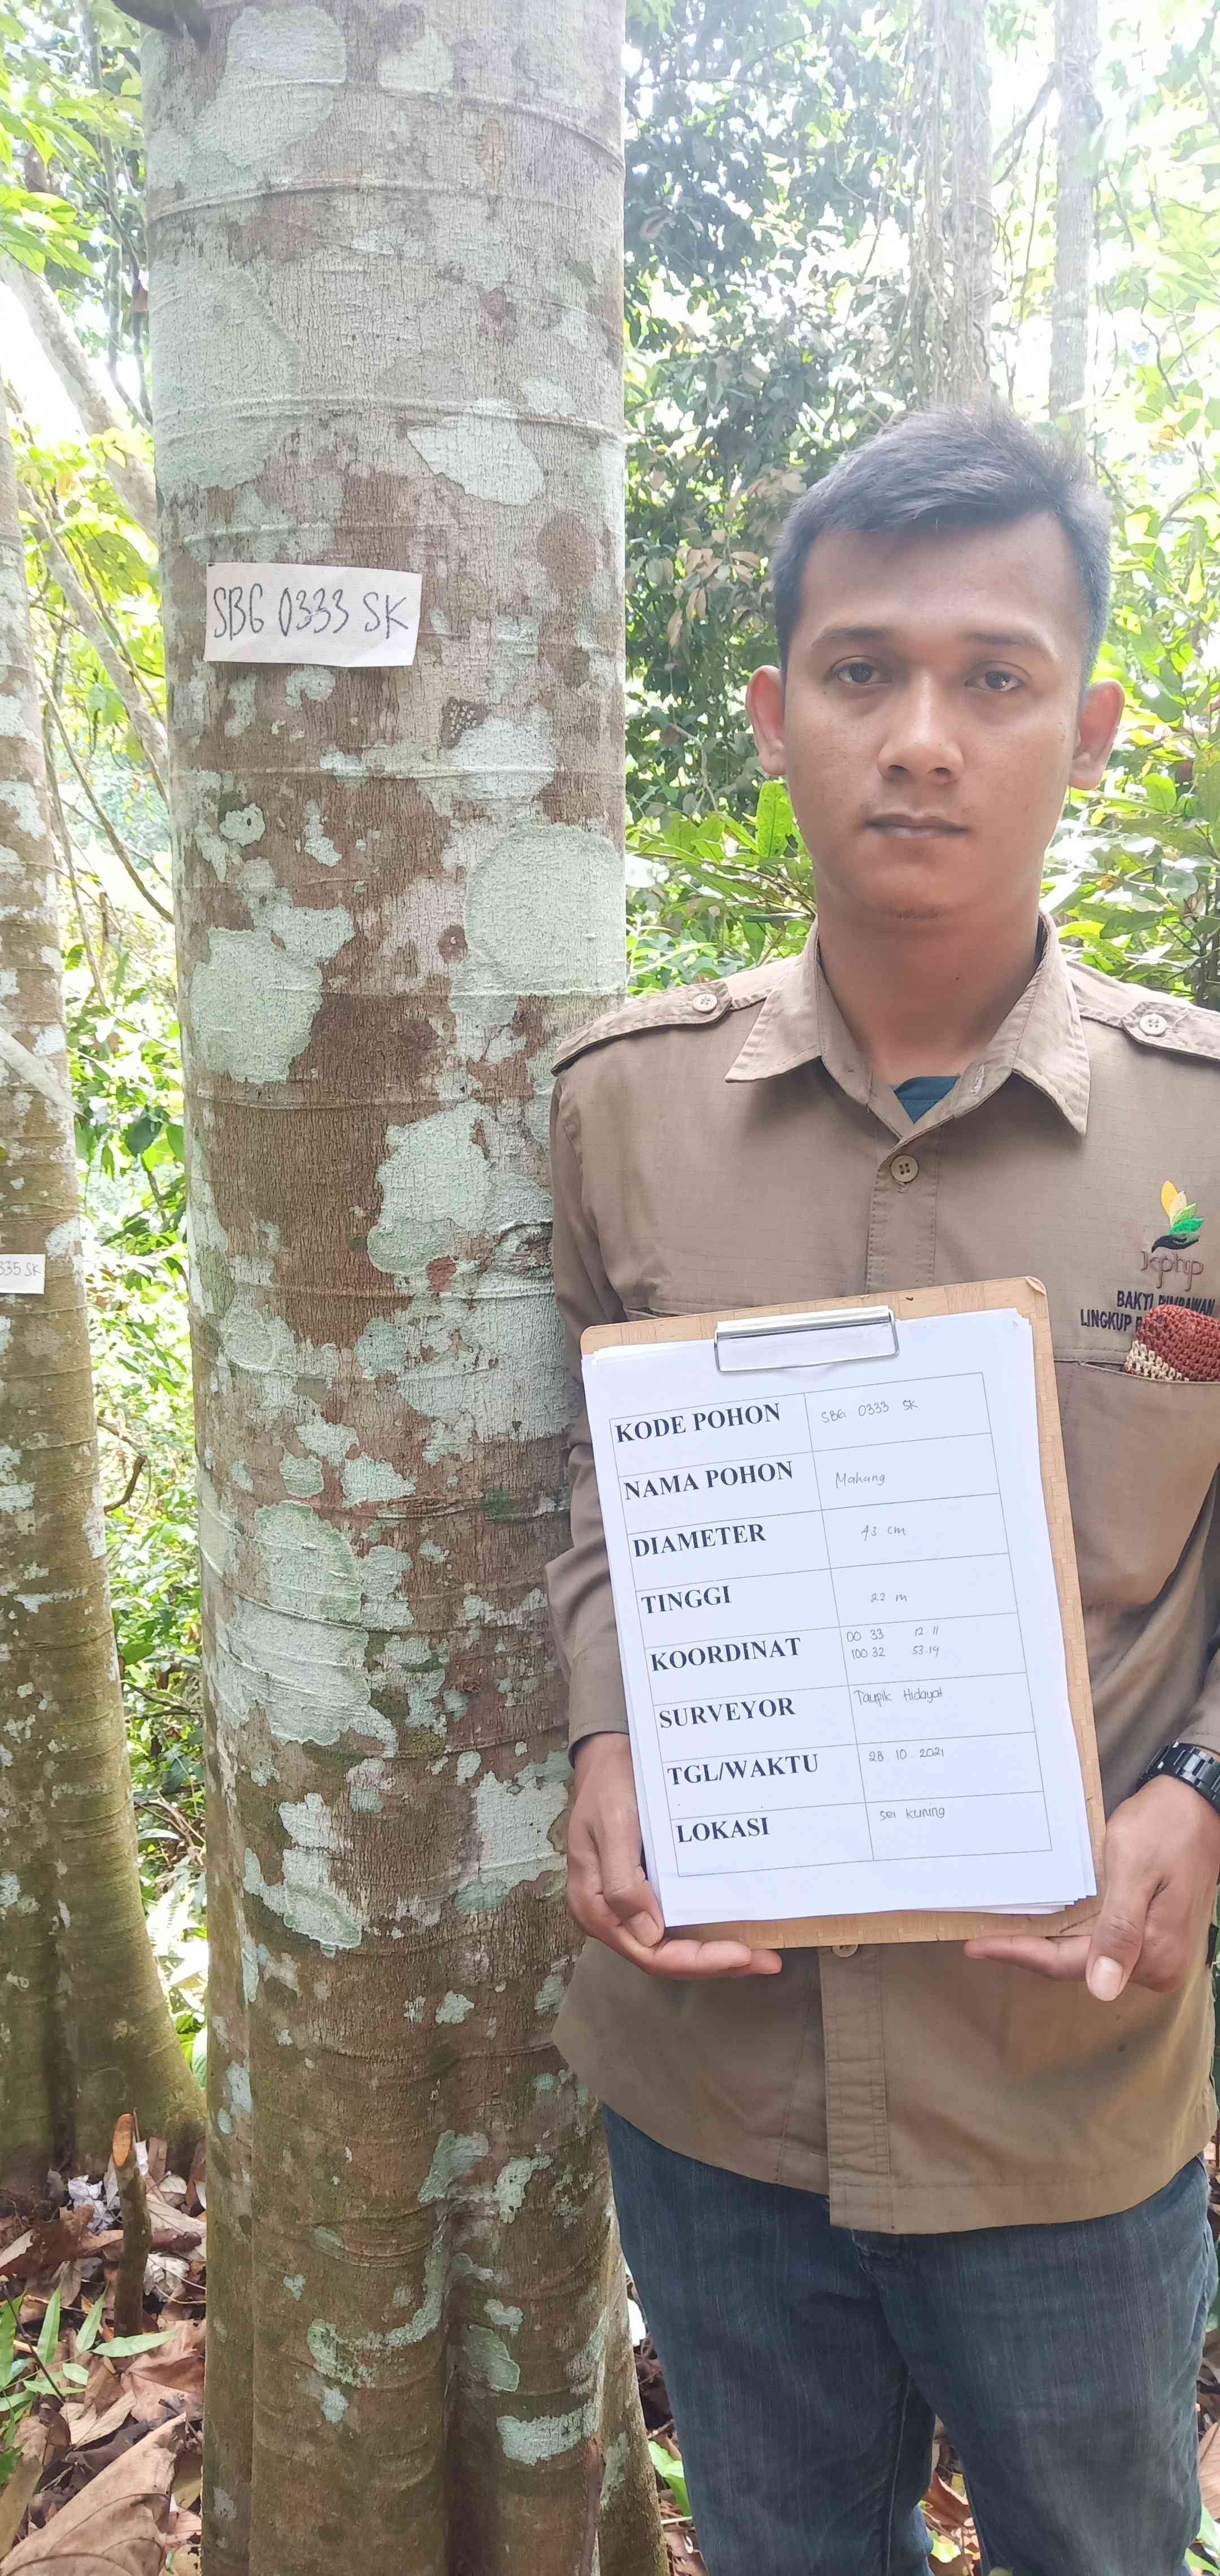 SBG 0333 SK
335 SK
kphp
BAKTI RIMBAWAN
LINGKUP
KODE POHON SBG 0333 SK
NAMA POHON Mahang
DIAMETER 43 cm
TINGGI 22 m
KOORDINAT 00 33 12.11
100 32 53.19
SURVEYOR Taupik Hidayat
TGL/WAKTU 28 10 2021
LOKASI Sei Kuning